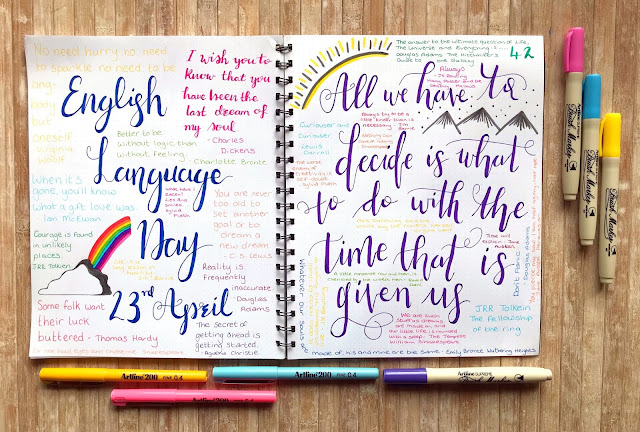 No need hurry no need
to sparkle no need to be
any-
body
but
oneself
English
Language
Day
23rd April
I wish you to
know that you
have been the
last dream of
my soul
- Charles
Dickens
Better to be
without logic than
without feeling
Charlotte Bronte
when it's
gone, you'll know
what a gift love was
Ian McEwan
You are never
too old to
set another
goal or to
dream a
new dream
- C.S. Lewis
Courage is found
in unlikely
places
JRR Tolkien
Reality is
Frequently
inaccurate
Douglas
Adams
Some folk want
their luck
buttered - Thomas Hardy
The Secret of
getting ahead is
getting started.
- Agatha Christie
The answer to the ultimate question of Life,
The Universe and Everything is....
Douglas Adams The Hitchhiker's
Guide to the Galaxy
42
All we have to
decide is what
to do with the
time that is
given us
JRR Tolkein
The fellowship
of the ring
Always
- JK Rowling
Curiouser and
Curiouser
Lewis
Carroll
The worst
enemy of
creativity is
self-doubt
Sylvia Plath
Time will
explain - Jane
Austen
Don't Panic
- Douglas Adams
We are such
stuff as dreams
are made on, and
our little life is rounded
with a sleep. The Tempest
William Shakespeare
Whatever our souls are
made of, his and mine are the same - Emily Bronte Wuthering Heights
Artline 200 FINE 0.4
Artline 200 FINE 0.4
Artline 200 FINE 0.4
Artline SUPREME
Brush Marker
Brush Marker
Brush Marker
Brush Marker